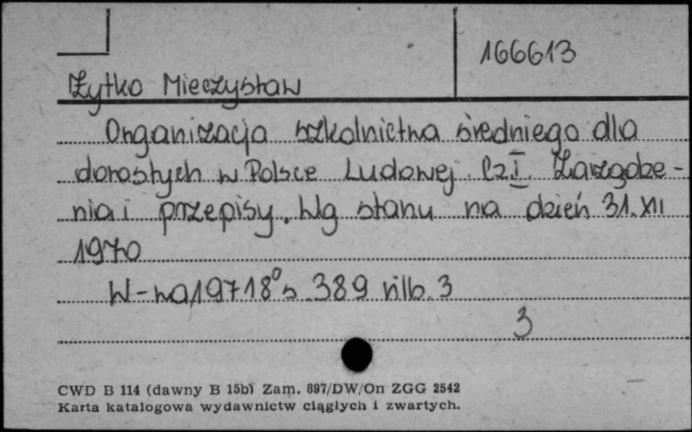 166613
Żytko Mieczysław
Organizacja szkolnictwa średniego dla
dorosłych w Polsce Ludowej. Cz I. Zarządze-
nia i przepisy. Wg stanu na dzień 31.XII
1970
W-wa 1971 8° s. 389 nlb. 3
3
CWD B 114 (dawny B 15b) Zam. 897/DW/On ZGG 2542
Karta katalogowa wydawnictw ciągłych i zwartych.